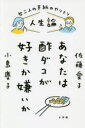 女二人の手紙のやりとり
人生論
あなたは
酢ダコが
好きか嫌いか
佐藤愛子
小島慶子
小学館